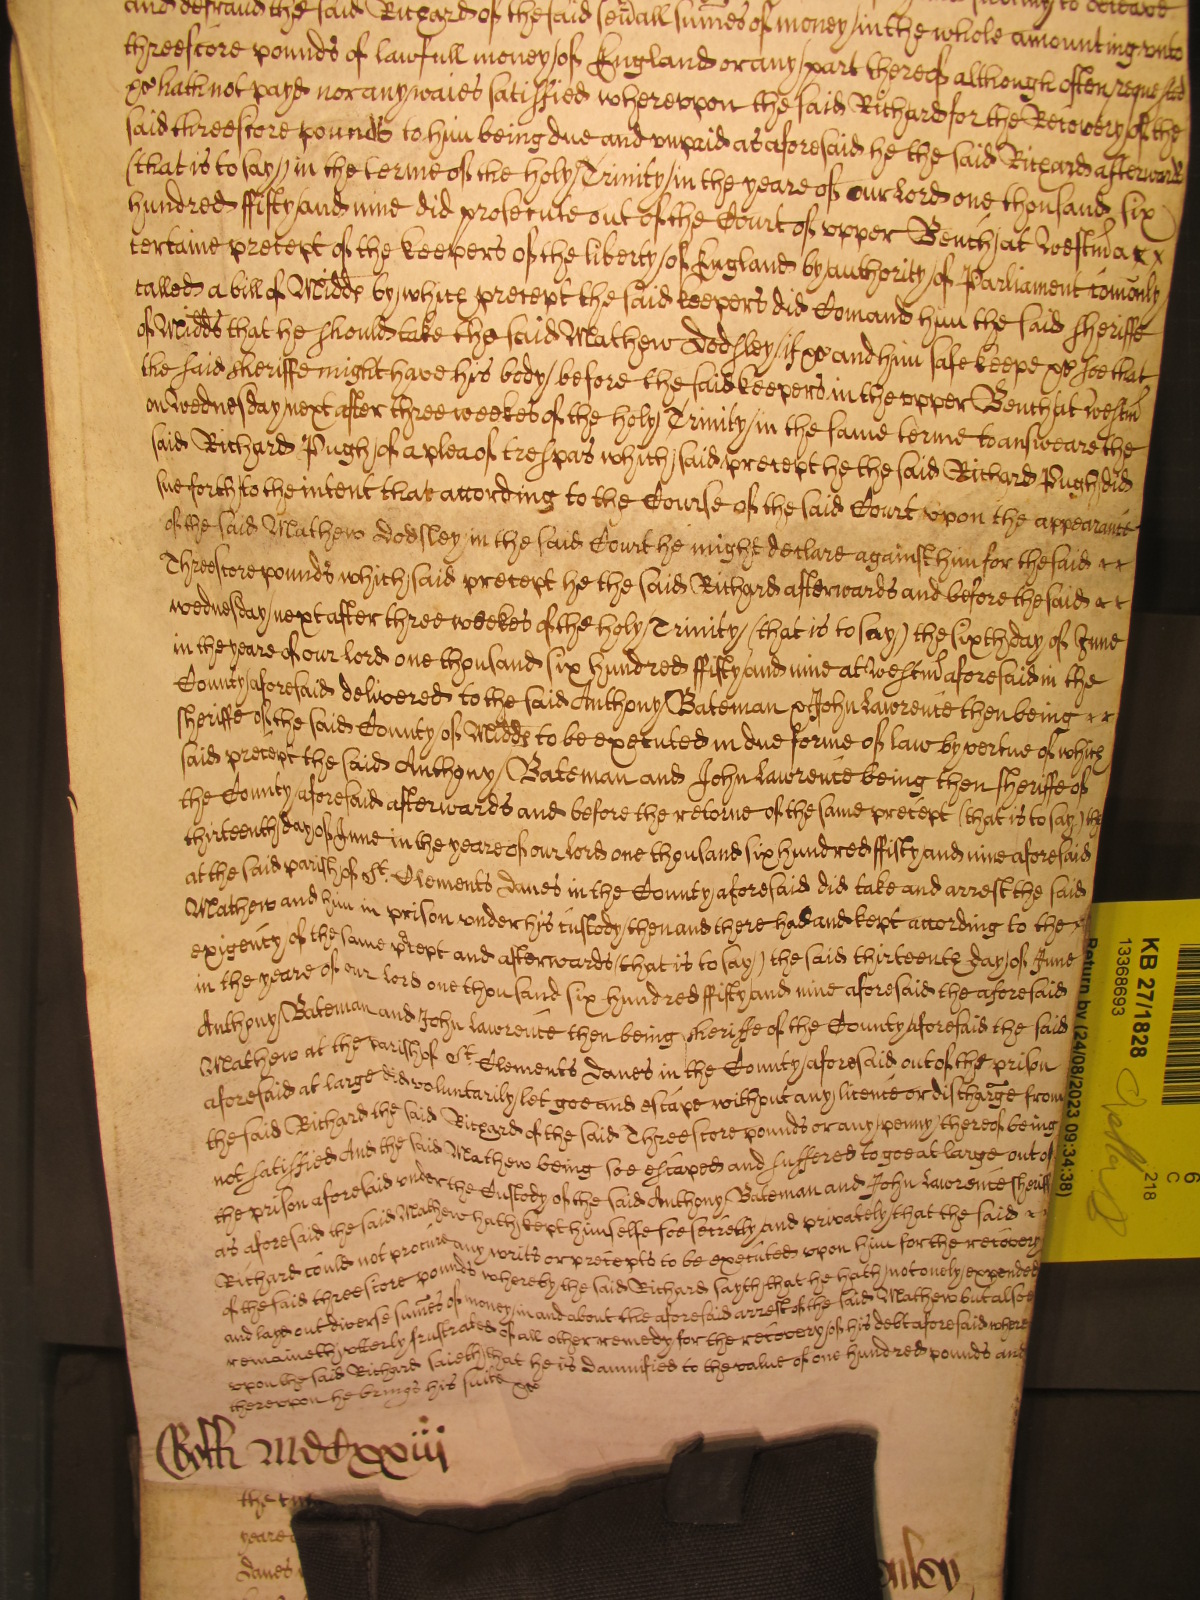 and defraud the said Richard of the said sev̄all summes of money in the whole amounting unto
threescore pounds of lawfull money of England or any part thereof although often requested
he hath not payd nor any waies satisfied whereupon the said Richard for the Recovery of the
said threescore pounds to him being due and unpaid as aforesaid he the said Richard afterwards
(that is to say) in the terme of the holy Trinity in the yeare of our Lord one thousand six
hundred ffifty and nine did prosecute out of the Court of upper Bench at Westm̄ a
certaine precept of the keepers of the liberty of England by authority of Parliament com̄only
called a bill of Midd̄ by which precept the said keepers did Comand him the said sheriffe
of Midd̄s that he should take the said Mathew Dodsley if &c and him safe keepe &c soe that
the said sheriffe might have his body before the said keepers in the upper Bench at Westm̄
on Wednesday next after three weekes of the holy Trinity in the same terme to answeare the
said Richard Pugh of a plea of trespas which said precept he the said Richard Pugh did
sue forth to the intent that according to the Course of the said Court upon the appearance
of the said Mathew Dodsley in the said Court he might declare against him for the said
Threescore pounds which said precept he the said Richard afterwards and before the said
wednesday next after three weekes of the holy Trinity (that is to say) the sixth day of June
in the yeare of our Lord one thousand six hundred ffifty and nine at Westm̄ aforesaid in the
County aforesaid delivered to the said Anthony Bateman & John Lawrence then being
sheriffe of the said County of Midd̄ to be executed in due forme of law by vertue of which
said precept the said Anthony Bateman and John Lawrence being then sheriffe of
the County aforesaid afterwards and before the retorne of the same precept (that is to say) the
thirteenth day of June in the yeare of our Lord one thousand six hundred ffifty and nine aforesaid
at the said parish of St. Clements Danes in the County aforesaid did take and arrest the said
Mathew and him in prison under his custody then and there had and kept according to the
exigency of the same p̄cept and afterwards (that is to say) the said thirteenth day of June
in the yeare of our Lord one thousand six hundred ffifty and nine aforesaid the aforesaid
Anthony Bateman and John Lawrence then being sheriffe of the County aforesaid the said
Mathew at the parish of St. Clements Danes in the County aforesaid out of the prison
aforesaid at large did voluntarily let goe and escape without any licence or discharge from
the said Richard the said Richard of the said Threescore pounds or any penny thereof being
not satisfied And the said Mathew being soe escaped and suffered to goe at large out of
the prison aforesaid under the Custody of the said Anthony Bateman and John Lawrence sheriffe
as aforesaid the said Mathew hath kept himselfe soe secretly and privately that the said
Richard could not procure any writs or precepts to be executed upon him for the recovery
of the said threescore pounds whereby the said Richard sayth that he hath not onely expended
and layd out diverse sumes of money in and about the aforesaid arrest of the said Mathew but alsoe
remaineth utterly frustrated of all other remedy for the recovery of his debt aforesaid where
upon the said Richard saieth that he is damnified to the value of one hundred pounds and
thereupon he brings his suite &c
MdCCxxiii
yeare
Danes
KB 27/1828
13368693
Return by (24/08/2023 09:34:38)
218
C
6